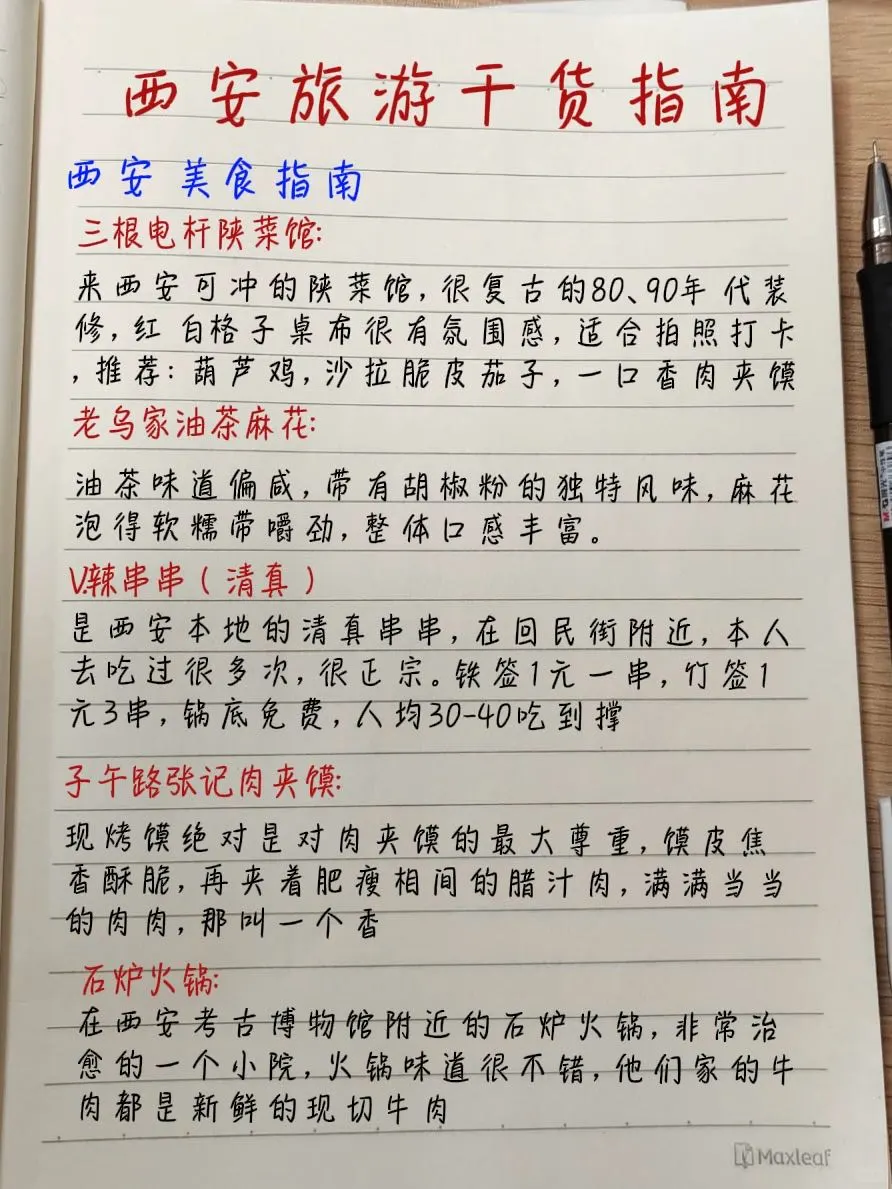 西安旅游干货指南
西安美食指南
三根电杆陕菜馆:
来西安可冲的陕菜馆,很复古的80、90年代装
修,红白格子桌布很有氛围感,适合拍照打卡
,推荐:葫芦鸡,沙拉脆皮茄子,一口香肉夹馍
老乌家油茶麻花:
油茶味道偏咸,带有胡椒粉的独特风味,麻花
泡得软糯带嚼劲,整体口感丰富。
V.辣串串(清真)
是西安本地的清真串串,在回民街附近,本人
去吃过很多次,很正宗。铁签1元一串,竹签1
元3串,锅底免费,人均30-40吃到撑
子午路张记肉夹馍:
现烤馍绝对是对肉夹馍的最大尊重,馍皮焦
香酥脆,再夹着肥瘦相间的腊汁肉,满满当当
的肉肉,那叫一个香
石炉火锅:
在西安考古博物馆附近的石炉火锅,非常治
愈的一个小院,火锅味道很不错,他们家的牛
肉都是新鲜的现切牛肉
Maxleaf